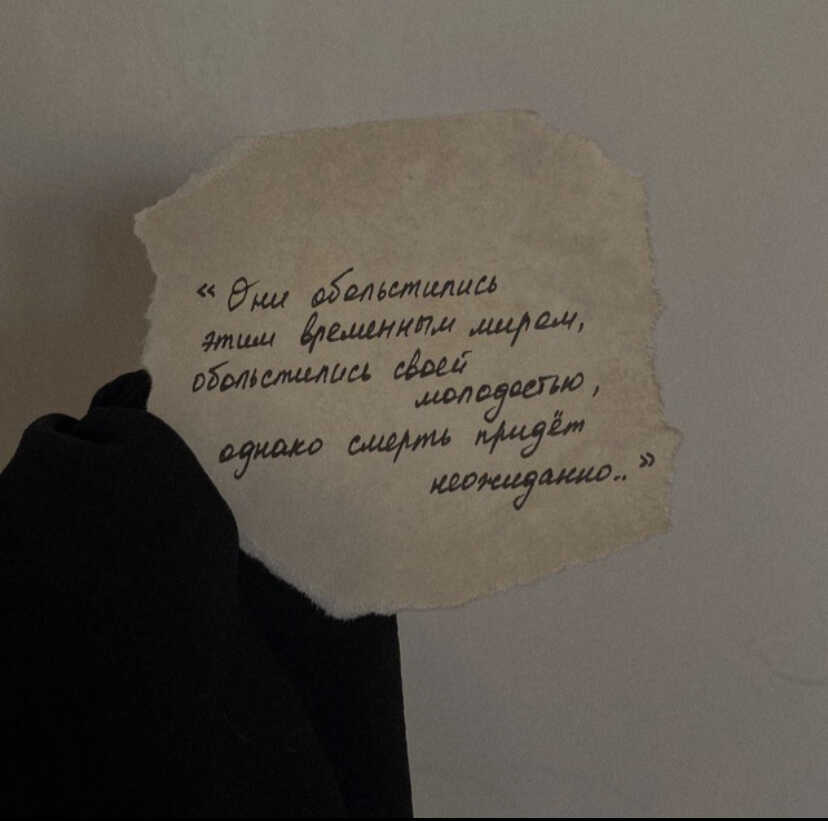 « Они обольстились
этим временным миром,
обольстились своей
молодостью,
однако смерть придёт
неожиданно.. »